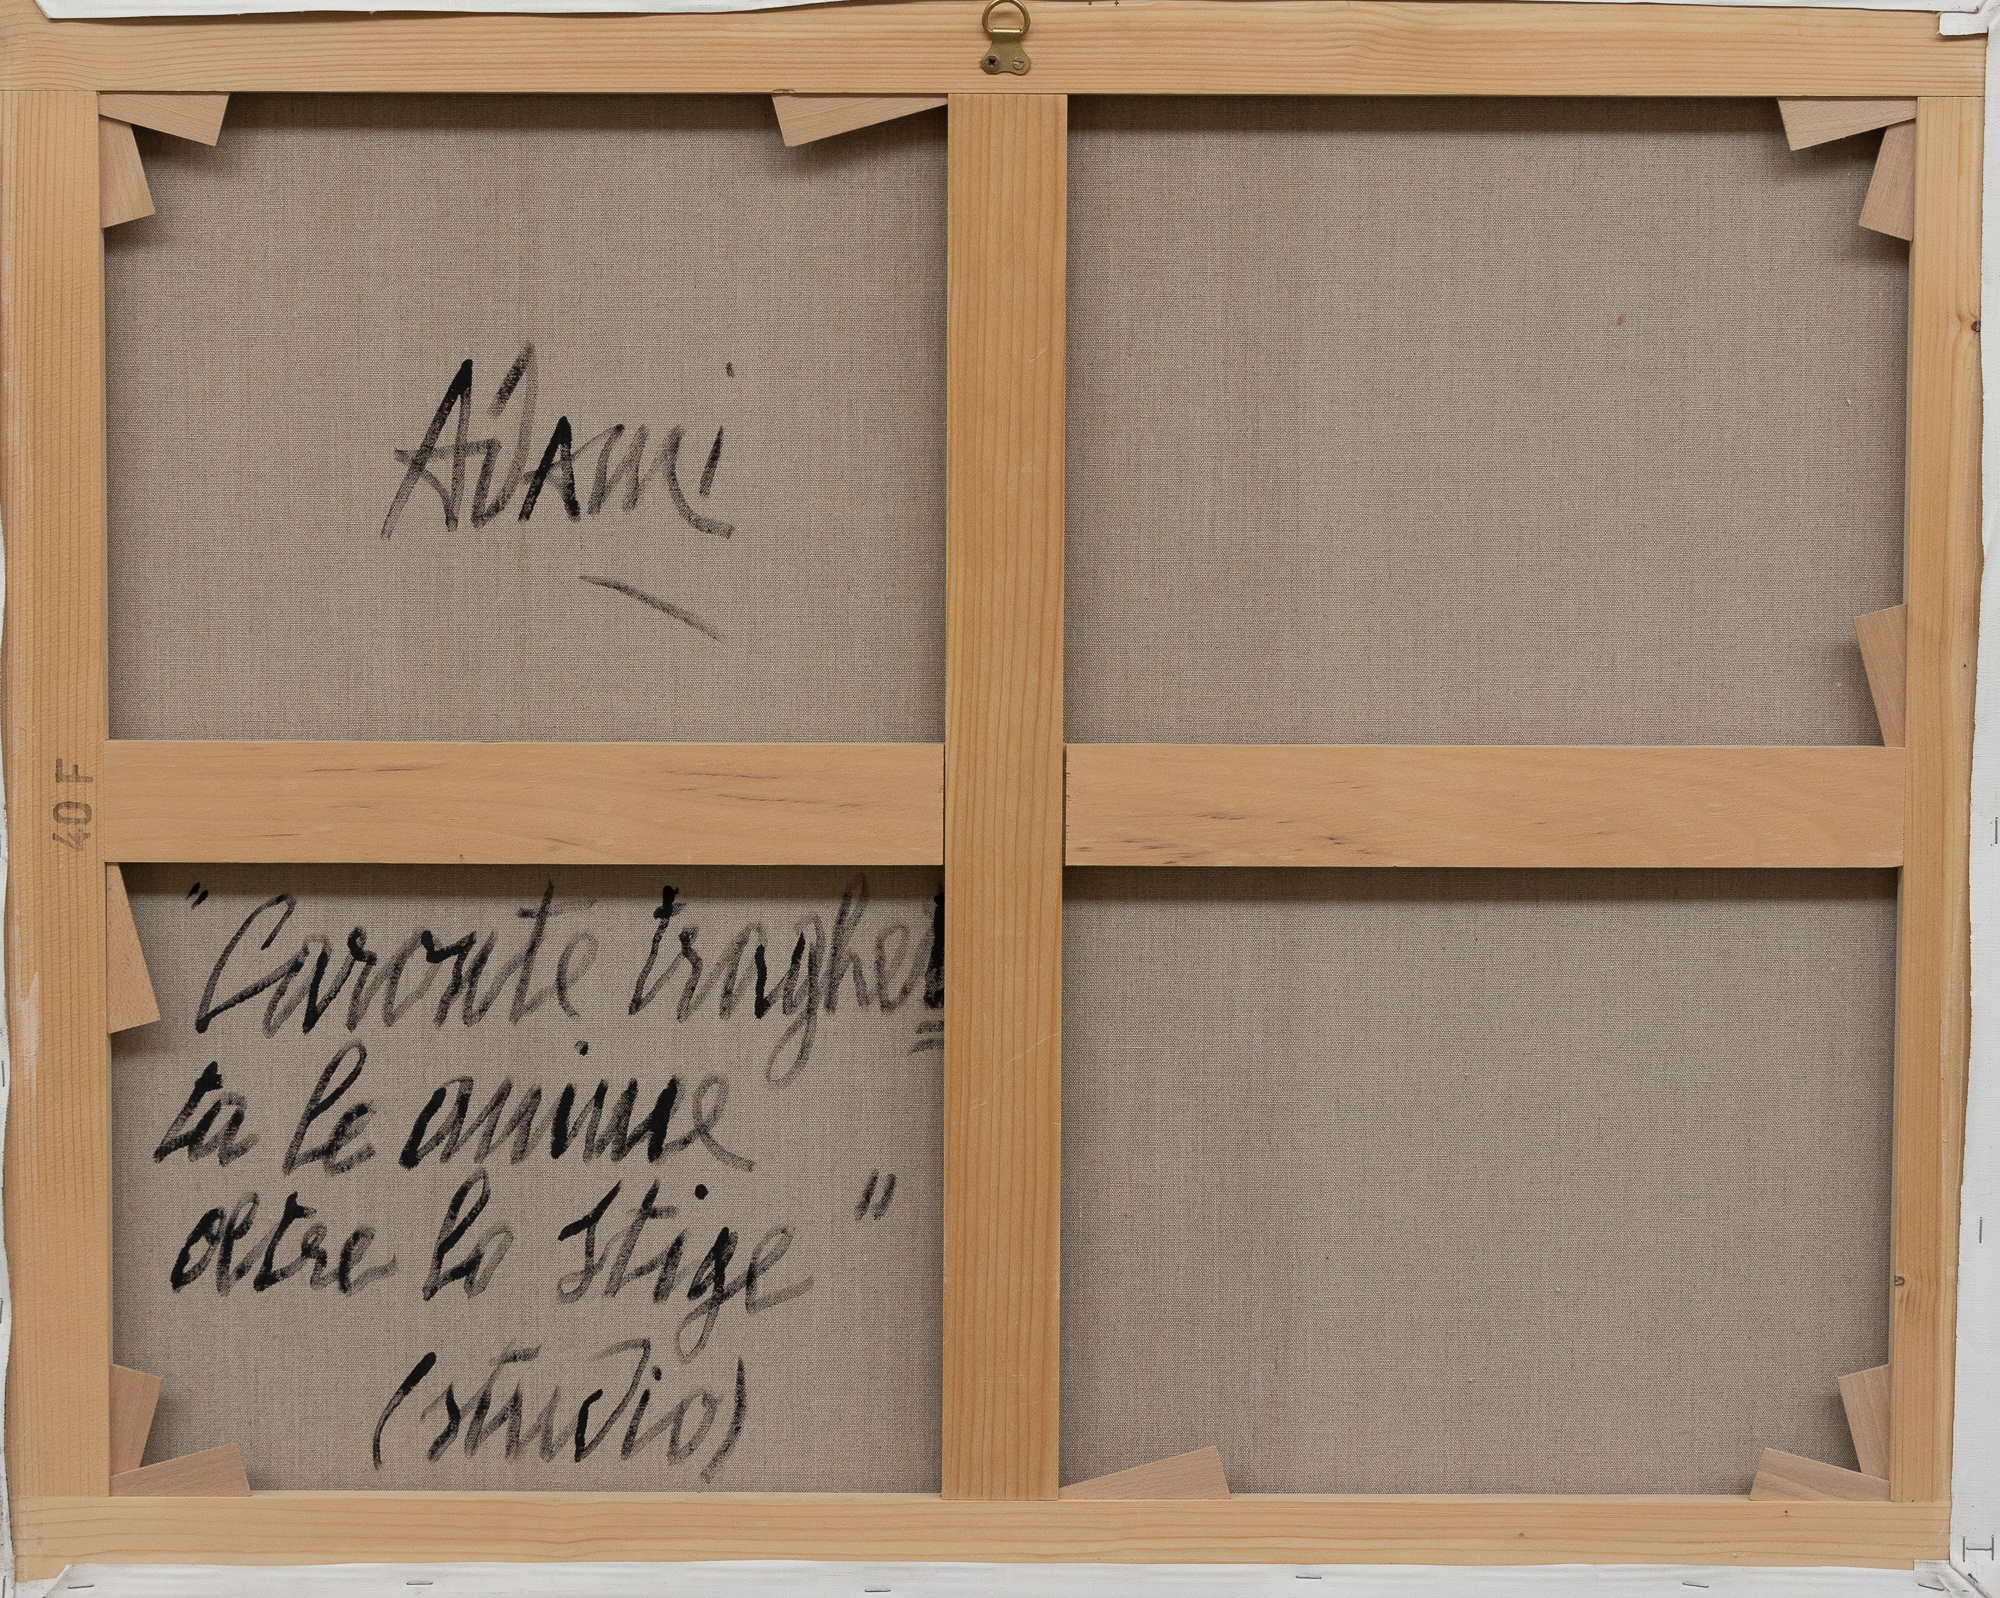 Adami
40 F
"Caronte traghet
ta le anime
oltre lo Stige"
(studio)